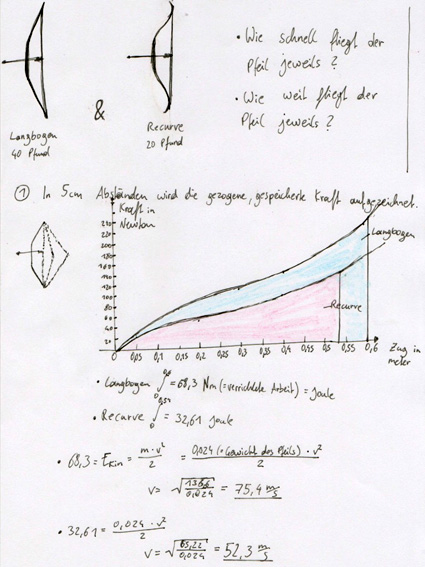 • Wie schnell fliegt der
Pfeil jeweils?
• Wie weit fliegt der
Pfeil jeweils?
&
Langbogen
40 Pfund
Recurve
20 Pfund
① In 5cm Abständen wird die gezogene, gespeicherte Kraft aufgezeichnet.
Kraft in
Newton
240
220
200
180
160
140
120
100
80
60
40
20
Langbogen
Recurve
0 0,05 0,1 0,15 0,2 0,25 0,3 0,35 0,4 0,45 0,5 0,55 0,6
Zug in
meter
• Langbogen ∫₀^0,6 = 68,3 Nm (= verrichtete Arbeit) = Joule
• Recurve ∫₀^0,54 = 32,61 Joule
• 68,3 = Ekin = m·v²/2 = 0,024 (= Gewicht des Pfeils) · v²/2
v = √136,6/0,024 = 75,4 m/s
• 32,61 = 0,024 · v²/2
v = √65,22/0,024 = 52,3 m/s